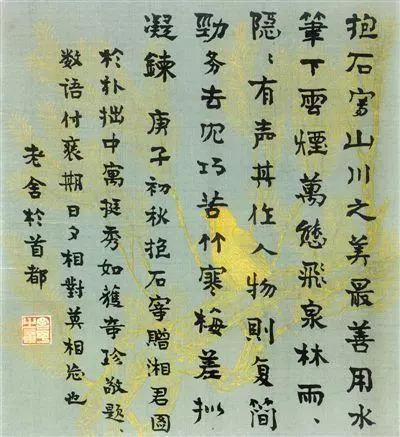 抱石寫山川之美最善用水
筆下雲煙萬態飛泉林雨、
隱、有声其作人物則复简
勁务去冗巧苦竹寒梅差拟
凝鍊 庚子初秋抱石贈湘君圖
於朴拙中寓挺秀如獲奇珍敬題、
数语付期日夕相對莫相忘也
老舍於首都